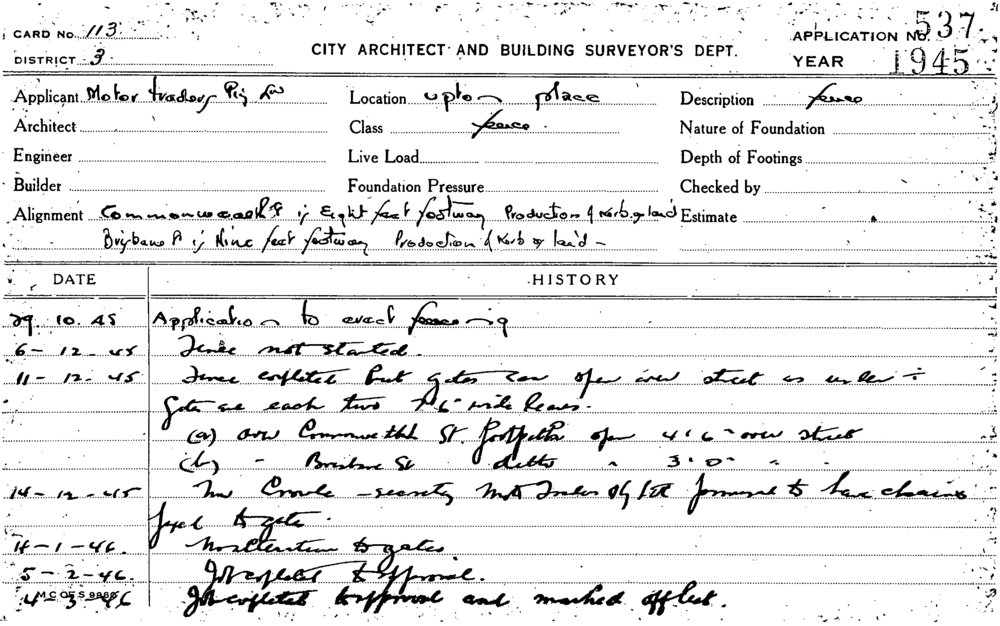 CARD No. 113
DISTRICT 3
CITY ARCHITECT AND BUILDING SURVEYOR'S DEPT.
APPLICATION No. 537
YEAR 1945
Applicant Motor Traders Pty Ltd
Location Upton place
Description fence
Architect
Class fence
Nature of Foundation
Engineer
Live Load
Depth of Footings
Builder
Foundation Pressure
Checked by
Alignment Commonwealth St is Eight feet footway Production of Kerb & land
Estimate
Brisbane St is Nine feet footway Production of Kerb & land -
DATE HISTORY
29. 10. 45 Application to erect fence
6-12-45 Fence not started.
11-12-45 Fence completed but gates can open over street as under ÷
Gates are each two 7'6" wide leaves.
(a) over Commonwealth St. footpath open 4'6" over street
(b) " Brisbane St ditto " 3'0" "
14-12-45 Mr - secretary Motor Traders Pty Ltd promised to have chains
fixed to gates.
11-1-46. No alteration to gates.
5-2-46. Job completed to approval.
M C O F S 9886
4-3-46 Job completed to approval and marked off list.